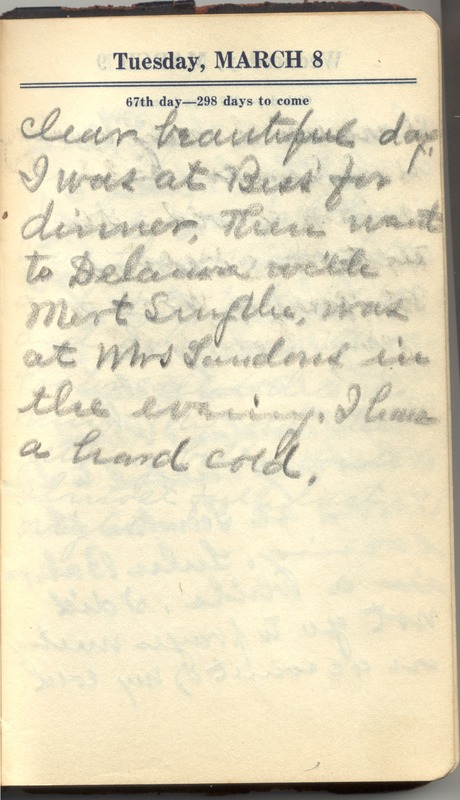 Tuesday, MARCH 8
67th day—298 days to come
Clear beautiful day,
I was at Bess for
dinner, Then went
to Delavan with
Mert Smythe, was
at Mrs Landons in
the evening. I have
a hard cold.